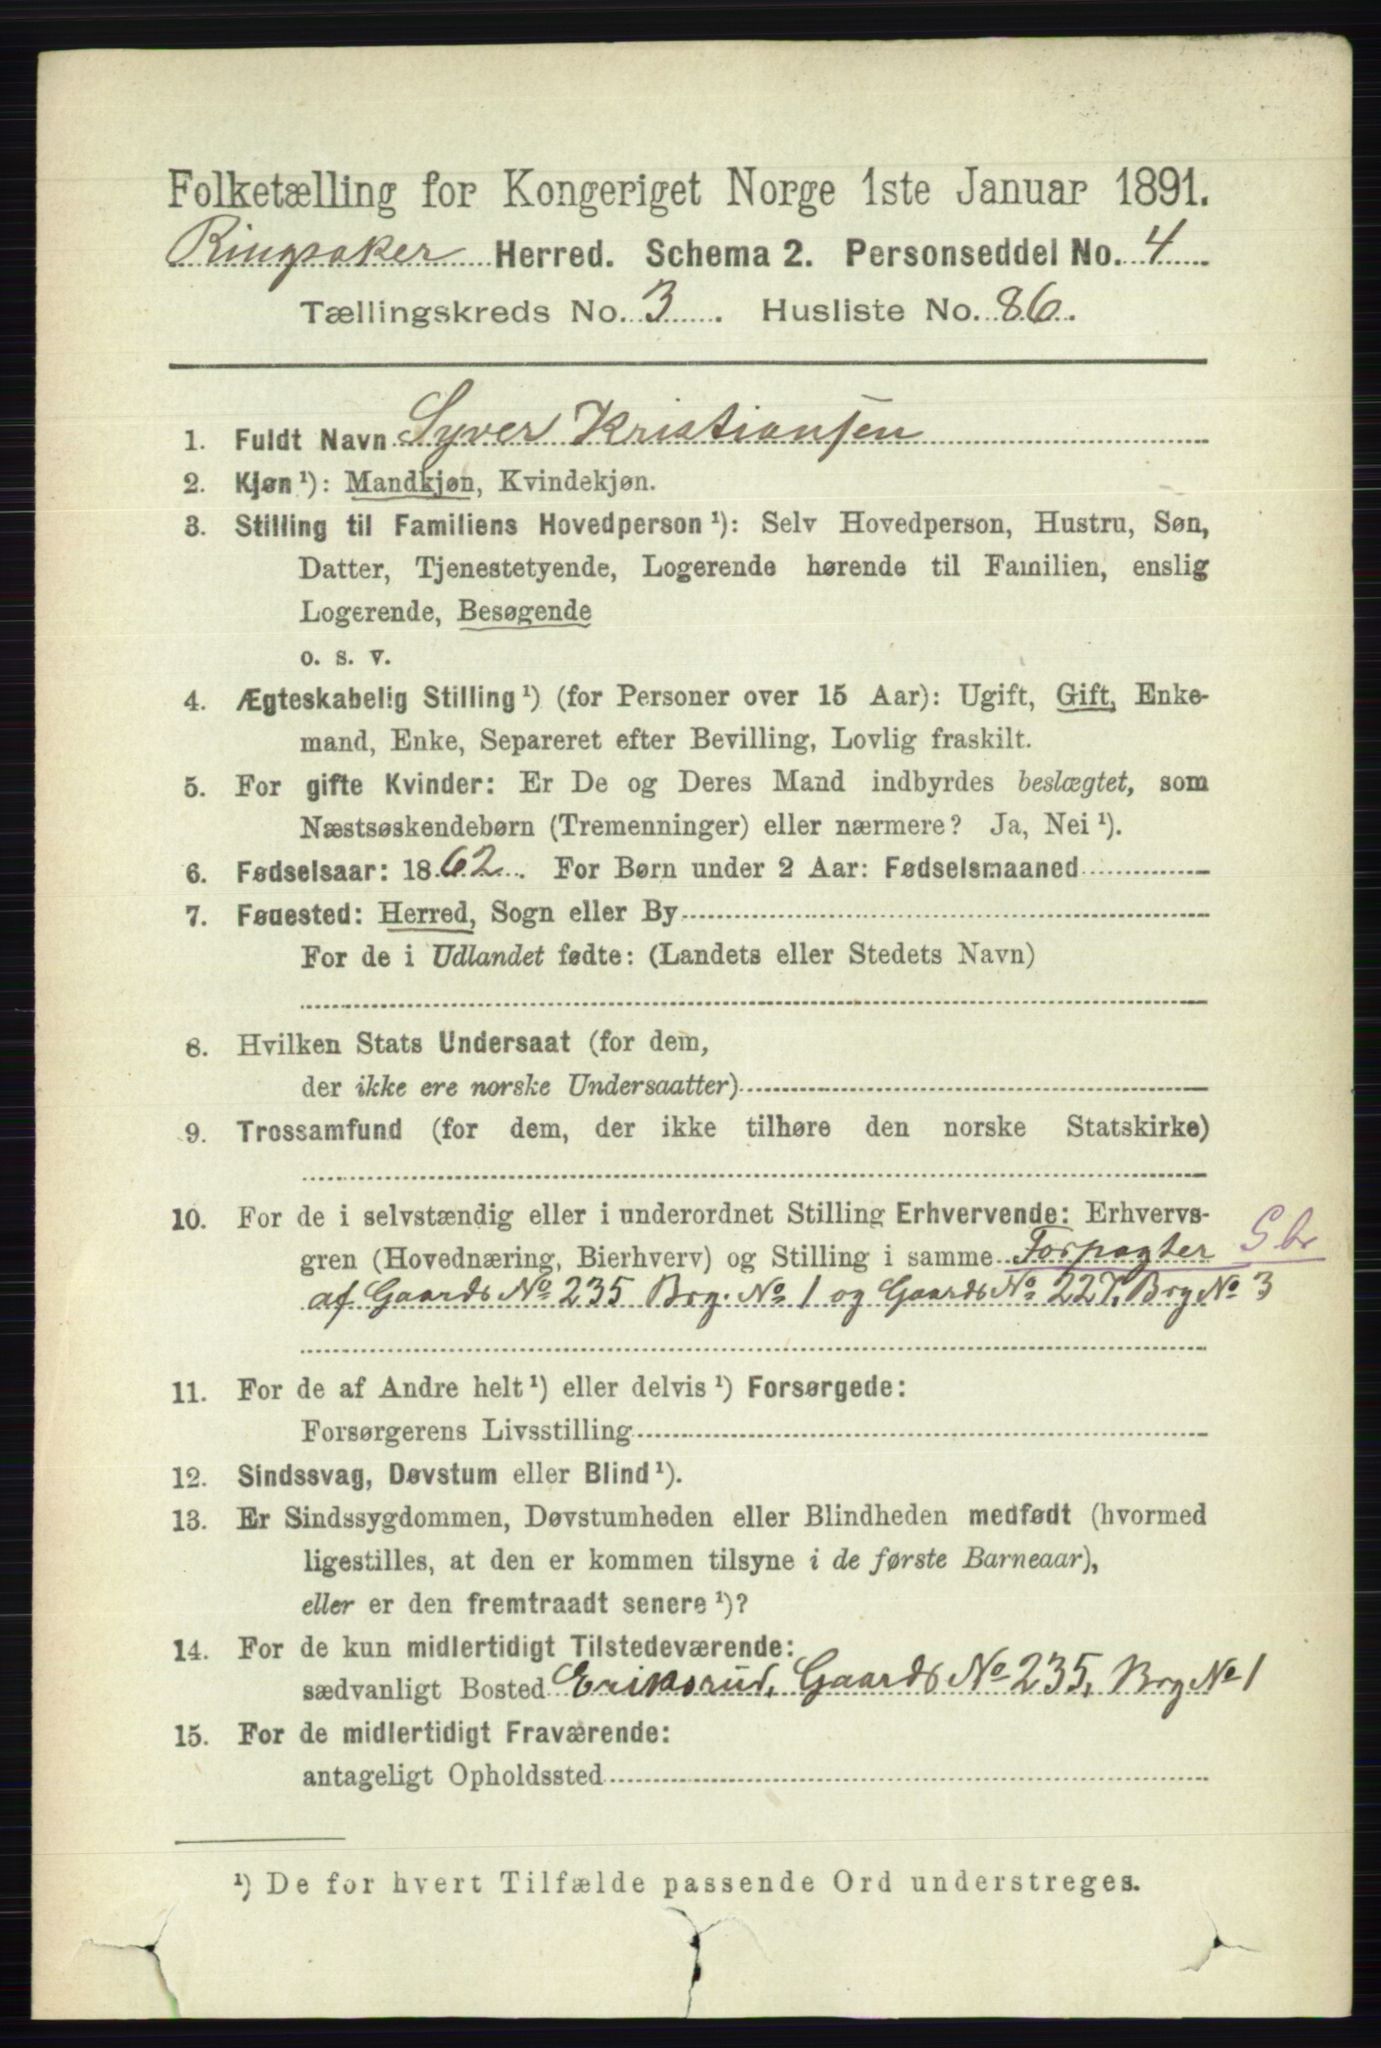 Folketælling for Kongeriget Norge 1ste Januar 1891.
Ringsaker Herred. Schema 2. Personseddel No. 4
Tællingskreds No. 3. Husliste No. 86.
1. Fuldt Navn Syver Kristiansen
2. Kjøn ¹): Mandkjøn, Kvindekjøn.
3. Stilling til Familiens Hovedperson ¹): Selv Hovedperson, Hustru, Søn,
Datter, Tjenestetyende, Logerende hørende til Familien, enslig
Logerende, Besøgende
o. s. v.
4. Ægteskabelig Stilling ¹) (for Personer over 15 Aar): Ugift, Gift, Enke-
mand, Enke, Separeret efter Bevilling, Lovlig fraskilt.
5. For gifte Kvinder: Er De og Deres Mand indbyrdes beslægtet, som
Næstsøskendebørn (Tremenninger) eller nærmere? Ja, Nei ¹).
6. Fødselsaar: 1862. For Børn under 2 Aar: Fødselsmaaned
7. Fødested: Herred, Sogn eller By
For de i Udlandet fødte: (Landets eller Stedets Navn)
8. Hvilken Stats Undersaat (for dem,
der ikke ere norske Undersaatter)
9. Trossamfund (for dem, der ikke tilhøre den norske Statskirke)
10. For de i selvstændig eller i underordnet Stilling Erhvervende: Erhvervs-
gren (Hovednæring, Bierhverv) og Stilling i samme Forpagter Sbr
af Gaards No 235 Brg. No 1 og Gaards No 227, Brg No 3
11. For de af Andre helt ¹) eller delvis ¹) Forsørgede:
Forsørgerens Livsstilling
12. Sindssvag, Døvstum eller Blind ¹).
13. Er Sindssygdommen, Døvstumheden eller Blindheden medfødt (hvormed
ligestilles, at den er kommen tilsyne i de første Barneaar),
eller er den fremtraadt senere ¹)?
14. For de kun midlertidigt Tilstedeværende:
sædvanligt Bosted Eriksrud, Gaards No 235, Brg No 1
15. For de midlertidigt Fraværende:
antageligt Opholdssted
¹) De for hvert Tilfælde passende Ord understreges.